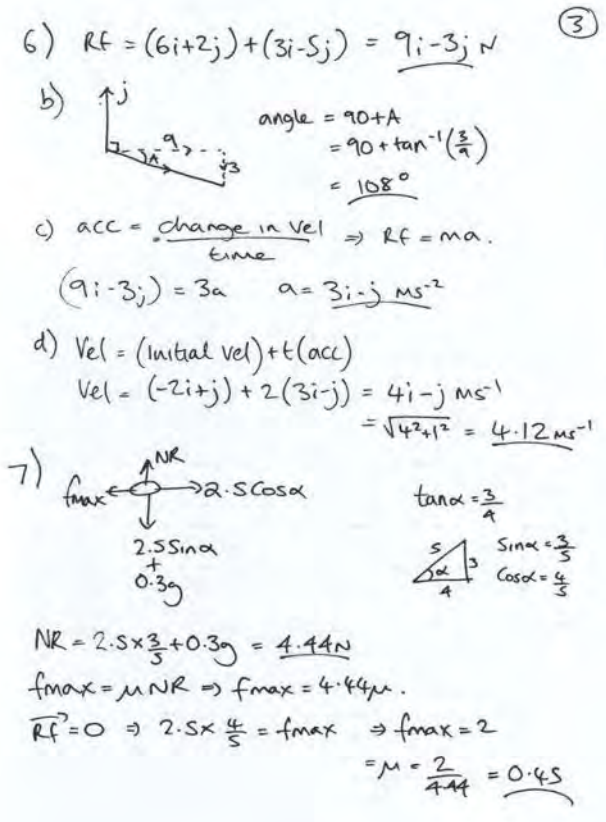 ③
6) RF = (6i+2j)+(3i-5j) = 9i-3j N
b) j
9
A
3
angle = 90+A
= 90+tan⁻¹(3/9)
= 108°
c) acc = change in vel / time ⇒ RF = ma.
(9i-3j) = 3a a = 3i-j ms⁻²
d) Vel = (initial vel)+t(acc)
Vel = (-2i+j) + 2(3i-j) = 4i-j ms⁻¹
= √4²+1² = 4.12 ms⁻¹
7) NR
fmax 2.5Cosα
2.5Sinα
+
0.3g
tanα = 3/4
5 3 α 4
Sinα = 3/5
Cosα = 4/5
NR = 2.5×3/5+0.3g = 4.44N
fmax = μNR ⇒ fmax = 4.44μ.
RF = 0 ⇒ 2.5× 4/5 = fmax ⇒ fmax = 2
= μ = 2/4.44 = 0.45